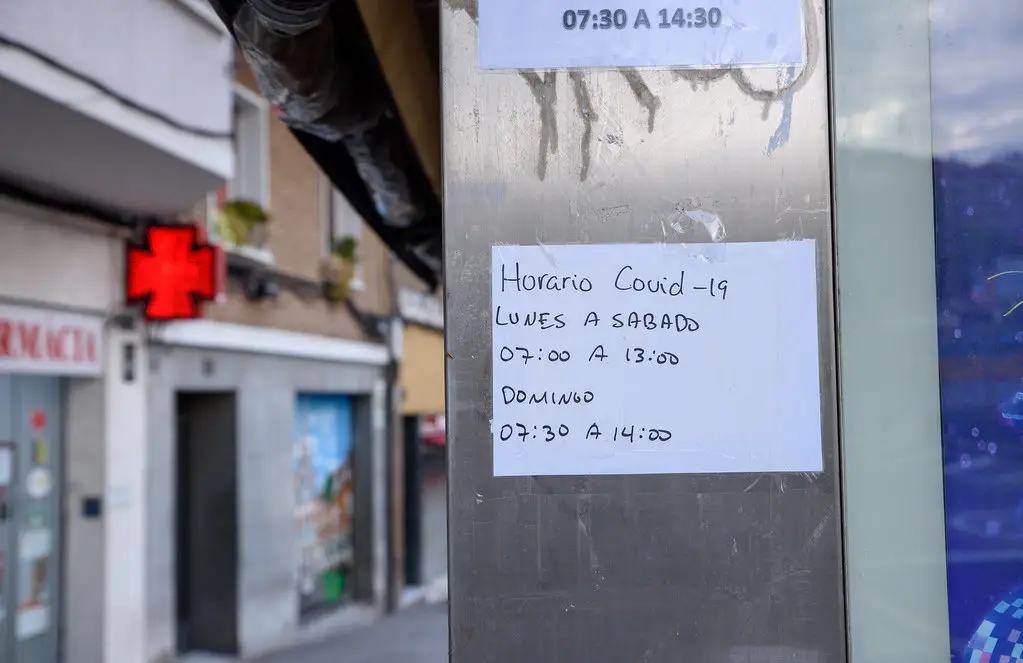 07:30 A 14:30
Horario Covid-19
LUNES A SABADO
07:00 A 13:00
DOMINGO
07:30 A 14:00
RMACIA